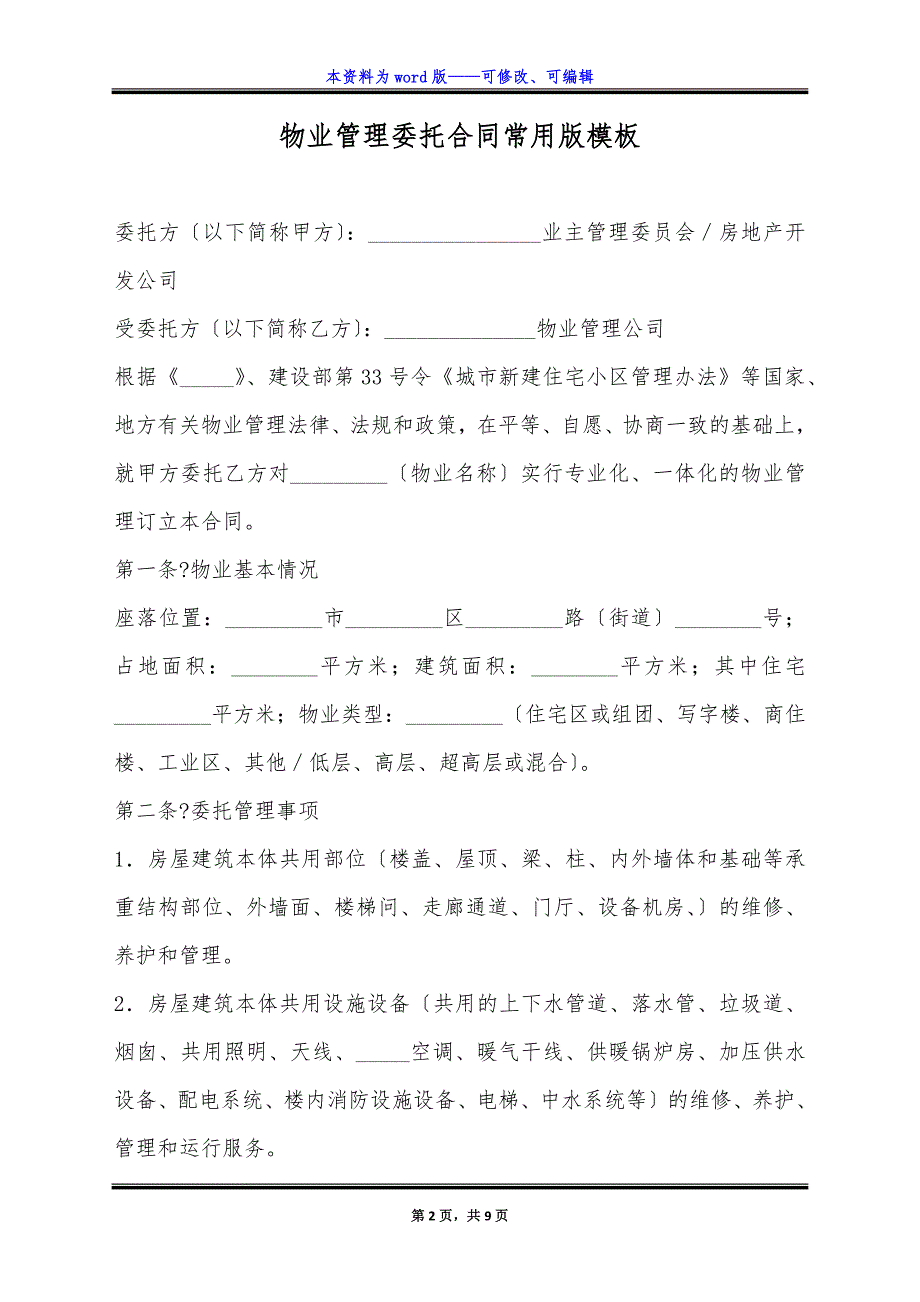 本资料为 word 版——可修改、可编辑
物业管理委托合同常用版模板
委托方〔以下简称甲方〕：________________业主管理委员会／房地产开
发公司
受委托方〔以下简称乙方〕：______________物业管理公司
根据《_____》、建设部第 33 号令《城市新建住宅小区管理办法》等国家、
地方有关物业管理法律、法规和政策，在平等、自愿、协商一致的基础上，
就甲方委托乙方对_________〔物业名称〕实行专业化、一体化的物业管
理订立本合同。
第一条?物业基本情况
座落位置：_________市_________区_________路〔街道〕________号；
占地面积：________平方米；建筑面积：________平方米；其中住宅
_________平方米；物业类型：_________〔住宅区或组团、写字楼、商住
楼、工业区、其他／低层、高层、超高层或混合〕。
第二条?委托管理事项
1．房屋建筑本体共用部位〔楼盖、屋顶、梁、柱、内外墙体和基础等承
重结构部位、外墙面、楼梯问、走廊通道、门厅、设备机房、〕的维修、
养护和管理。
2．房屋建筑本体共用设施设备〔共用的上下水管道、落水管、垃圾道、
烟囱、共用照明、天线、_____空调、暖气干线、供暖锅炉房、加压供水
设备、配电系统、楼内消防设施设备、电梯、中水系统等〕的维修、养护、
管理和运行服务。
第 2 页，共 9 页